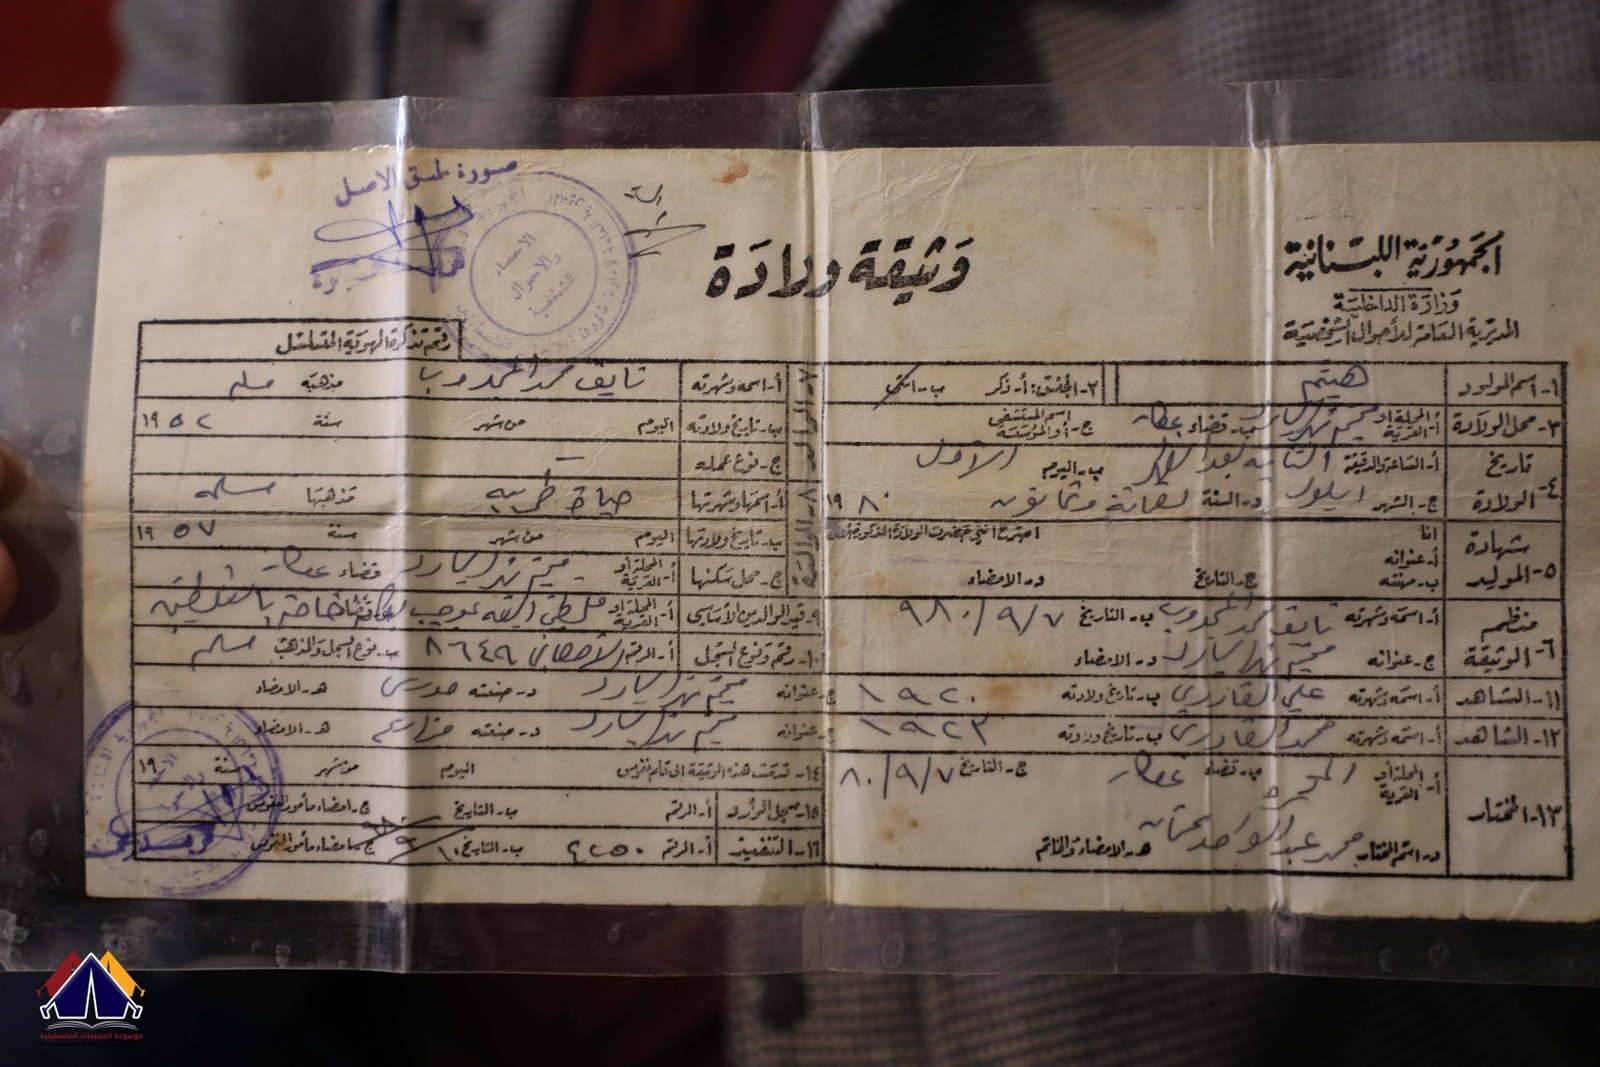 الجمهورية اللبنانية
وزارة الداخلية
المديرية العامة للأحوال الشخصية
وثيقة ولادة
صورة طبق الاصل
الاحصاء
والاحوال
الشخصية
رقم تذكرة الهوية المتسلسل
١- اسم المولود هيثم ٢- الجنس: أ- ذكر ب- انثى
٣- محل الولادة أ- المحلة او القرية مخيم نهر البارد ب- قضاء عكار ج- اسم المستشفى أو المؤسسة
٤- تاريخ الولادة أ- الساعة والدقيقة الثانية بعد الظهر ب- اليوم الاول
ج- الشهر ايلول د- السنة تسعمائة وثمانون ١٩٨٠
٥- شهادة المولد انا اصرح انني حضرت الولادة المذكورة أعلاه
أ- عنوانه
ب- مهنته ج- التاريخ د- الامضاء
٦- منظم الوثيقة أ- اسمه وشهرته نايف محمد المجذوب ب- التاريخ ٩٨٠/٩/٧
ج- عنوانه مخيم نهر البارد د- الامضاء
٧- الوالد أ- اسمه وشهرته نايف محمد المجذوب مذهبه مسلم
ب- تاريخ ولادته اليوم من شهر سنة ١٩٥٢
ج- نوع عمله —
٨- الوالدة أ- اسمها وشهرتها حياة مذهبها مسلمه
ب- تاريخ ولادتها اليوم من شهر سنة ١٩٥٧
ج- محل سكنها أ- المحلة أو القرية مخيم نهر البارد قضاء عكار
٩- قيد الوالدين الأساسي أ- المحلة او القرية بموجب خاصة
١٠- رقم ونوع السجل أ- الرقم ٨٦٤٩ ب- نوع السجل والمذهب مسلم
١١- الشاهد أ- اسمه وشهرته علي القادري ب- تاريخ ولادته ١٩٢٠ ج- عنوانه مخيم نهر البارد د- صنعته هـ- الامضاء
١٢- الشاهد أ- اسمه وشهرته محمد القادري ب- تاريخ ولادته ١٩٢٣ ج- عنوانه مخيم نهر البارد د- صنعته مزارع هـ- الامضاء
١٣- المختار أ- المحلة أو القرية المحمرة ب- قضاء عكار ج- التاريخ ٨٠/٩/٧
د- اسم المختار محمد عبد الواحد عثمان هـ- الامضاء والخاتم
١٤- قدمت هذه الوثيقة الى قلم نفوس اليوم من شهر سنة ١٩
١٥- سجل الورود أ- الرقم ب- التاريخ ج- امضاء مأمور النفوس
١٦- التنفيذ أ- الرقم ٤٢٥٠ ب- التاريخ ج- امضاء مأمور النفوس
موسوعة المخيمات الفلسطينية